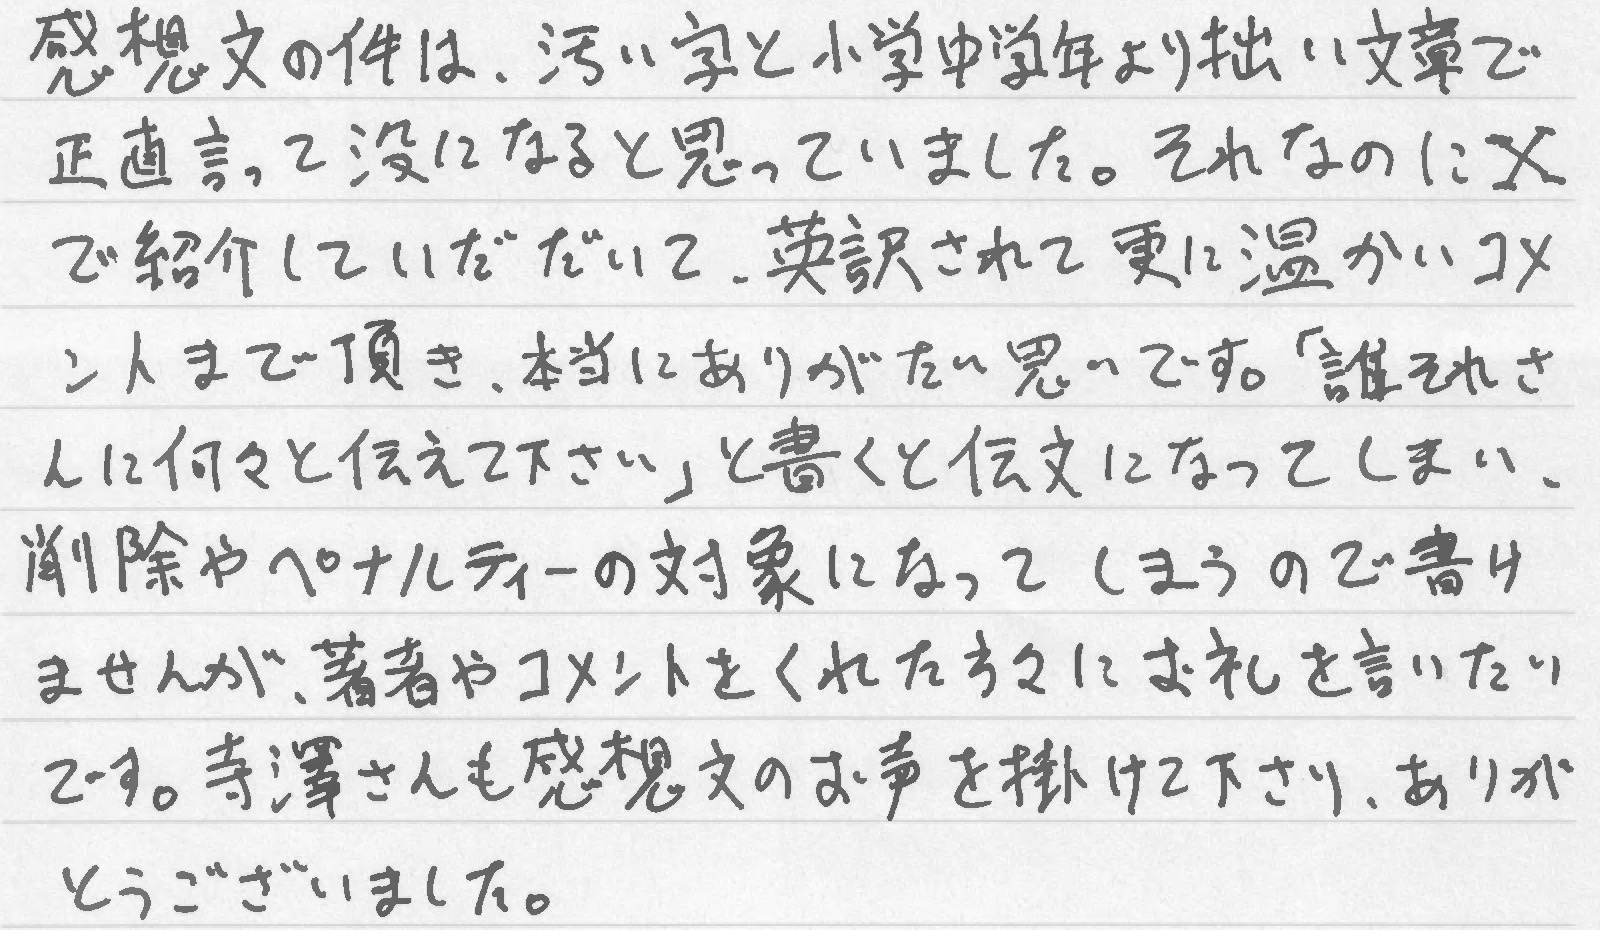 感想文の件は、汚い字と小学中学年より拙い文章で
正直言って没になると思っていました。それなのにX
で紹介していだだいて、英訳されて更に温かいコメ
ントまで頂き、本当にありがたい思いです。「誰それさ
んに何々と伝えて下さい」と書くと伝文になってしまい、
削除やペナルティーの対象になってしまうので書け
ませんが、著者やコメントをくれた方々にお礼を言いたい
です。寺澤さんも感想文のお声を掛けて下さり、ありが
とうございました。